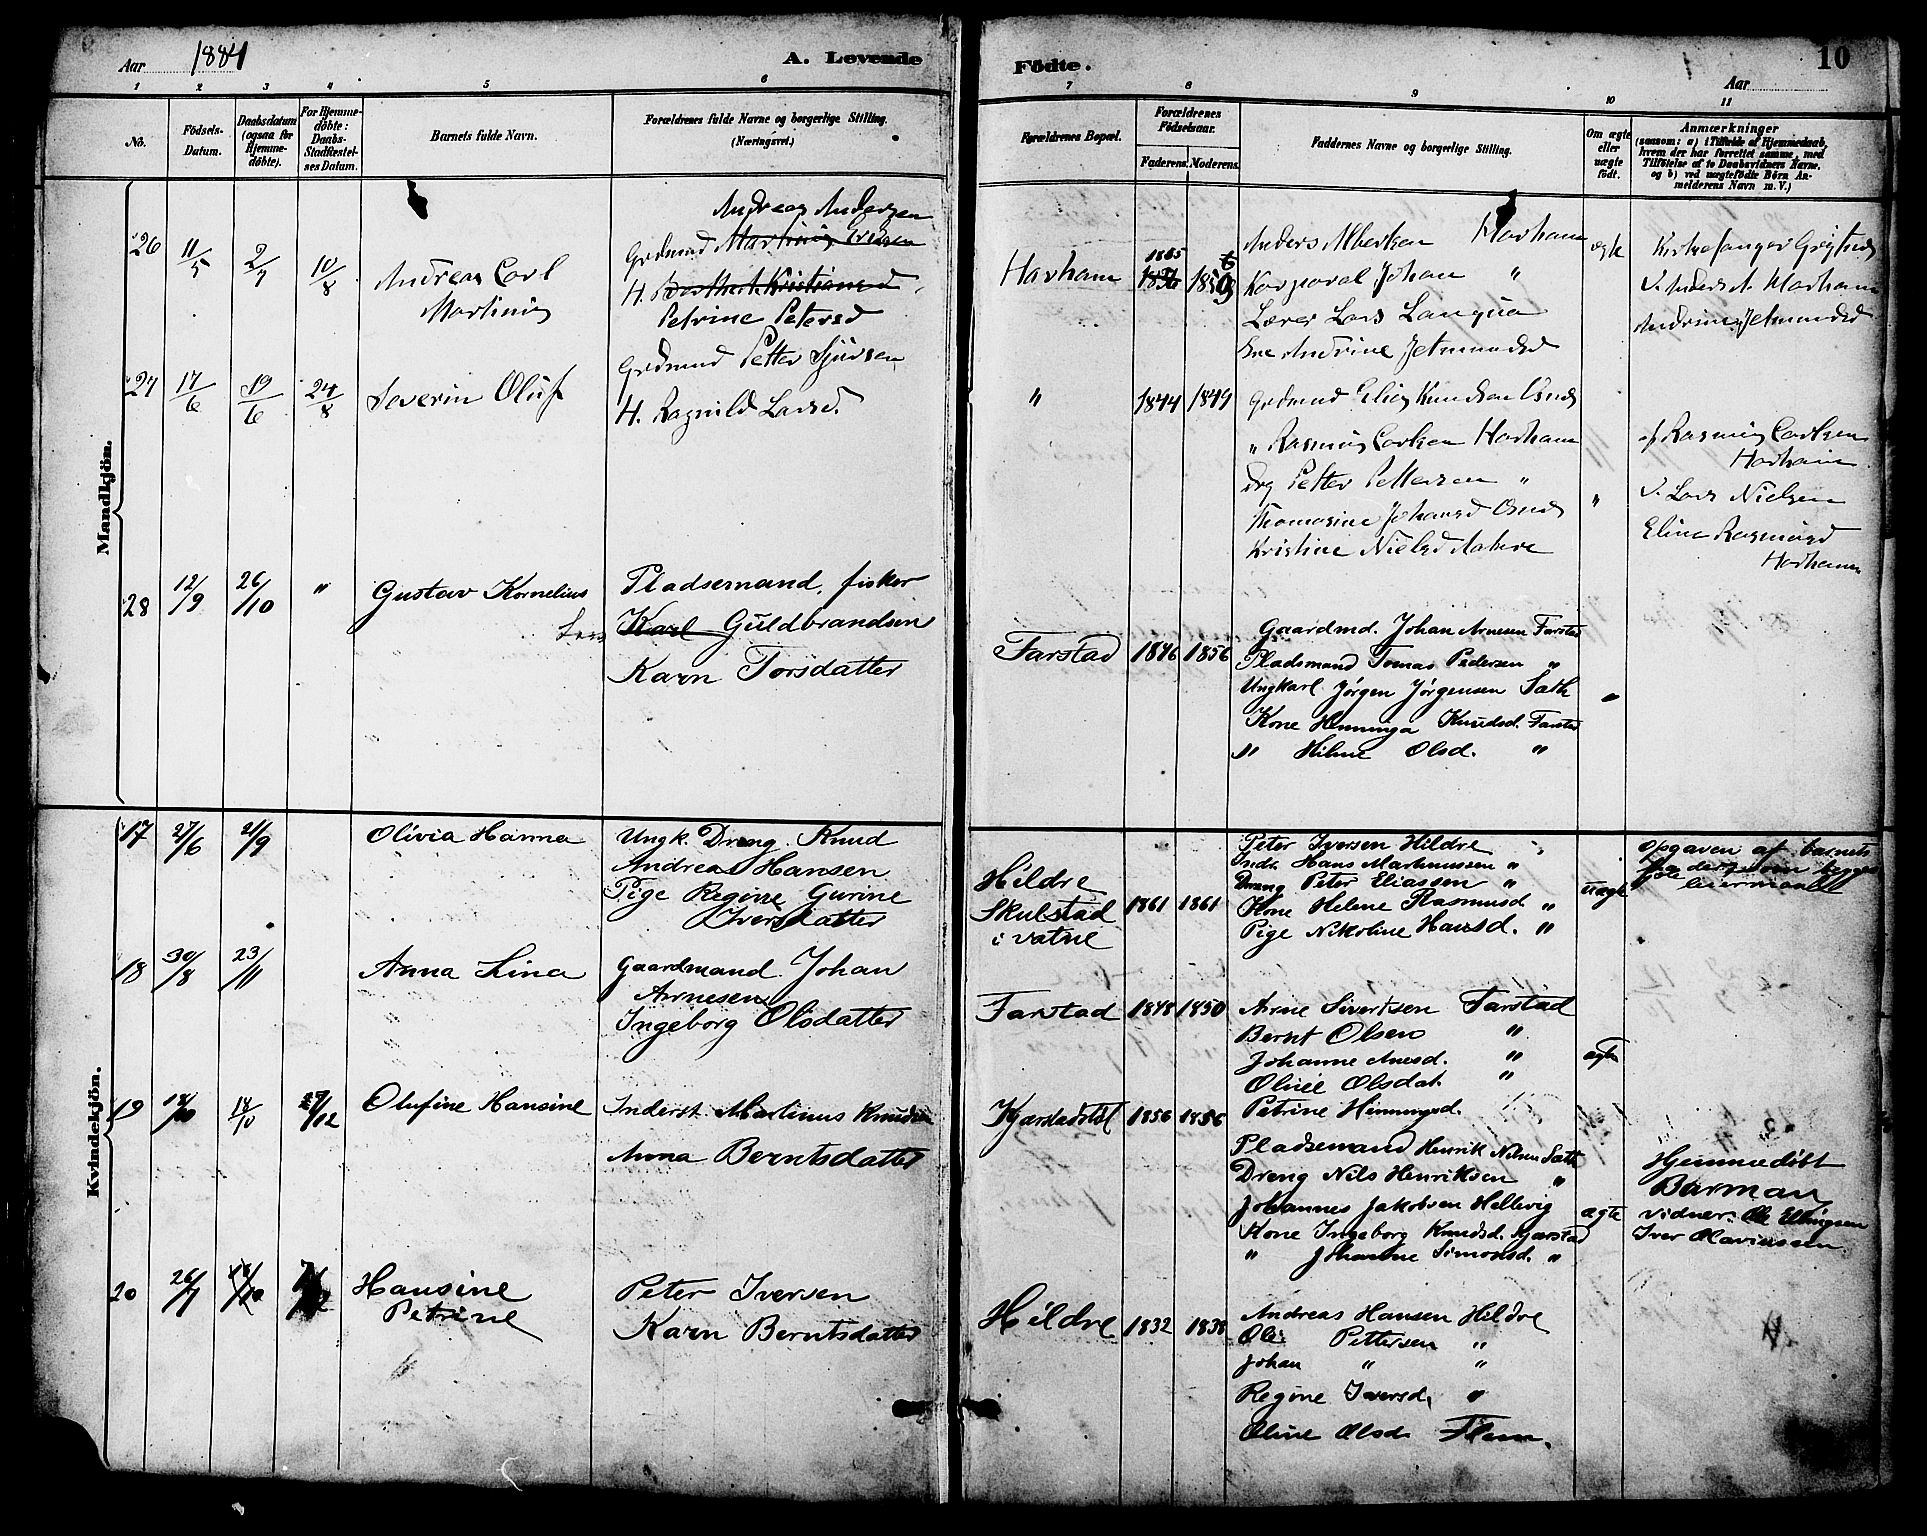 Aar 1884
A. Levende
Födte.
Aar
10
1 2 3 4 5 6 7 8 9 10 11
No.
Födsels-
Datum.
Daabsdatum
(ogsaa for
Hjemme-
döbte).
For Hjemme-
döbte:
Daabs-
Stadfæstel-
ses Datum.
Barnets fulde Navn.
Forældrenes fulde Navne og borgerlige Stilling.
(Næringsvei.)
Forældrenes Bopæl.
Forældrenes
Födselsaar.
Faderens. Moderens.
Faddernes Navne og borgerlige Stilling.
Om ægte
eller
uægte
födt.
Anmærkninger
(saasom: a) i Tilfælde af Hjemmedaab,
hvem der har forrettet samme, med
Tilföielse af to Daabsvidners Navne,
og b) ved uægtefödte Börn An-
melderens Navn m. V.)
Mandkjön.
26 11/5 2/7 10/8
Andreas Carl
Martinus
Andreas Andersen
Grdmnd Martinus
H. Kristiansd
Petrine Petersd
Harham
1865
Anders Albertsen Harham
Korporal Johan "
Lærer Lars Langva
Ene Andrine Jetmundsd
ægte
Kirkesanger
V. Anders A. Harham
Andrine Jetmundsd
27 17/6 19/6 24/8
Severin Oluf
Grdmnd Petter Sjursen
H. Ragnild Larsd.
" 1844 1849
Grdmnd Elias Knudsen
" Rasmus Carlsen Harham
Drg Petter Pettersen "
Thomasine Johansd
Kristine Nielsd
"
af Rasmus Carlsen
Harham
V. Lars Nielsen
Eline Rasmusd
Harham
28 12/9 26/10 "
Gustav Kornelius
Pladsemand, fisker
Lars Karl Guldbrandsen
Karn Torsdatter
Farstad 1846 1856
Gaardmd. Johan Arnesen Farstad
Pladsmand Tomas Pedersen "
Ungkarl Jørgen Jørgensen Sæth
Kone Henninga Knudsd. Farstad
" Hilme Olsd. "
"
Kvindekjön.
17 27/6 21/9
Olivia Hanna
Ungk. Dreng Knud
Andreas Hansen
Pige Regine Gurine
Iversdatter
Hildre
Skulstad
i vatne
1861 1861
Peter Iversen Hildre
Indr. Hans Martinussen "
Dreng Peter Eliassen "
Kone Helene Rasmusd "
Pige Nikoline Hansd. "
uægte
Opgaven af barnets
fader
leiermaal
18 30/8 23/11
Anna Lina
Gaardmand Johan
Arnesen
Ingeborg Olsdatter
Farstad 1848 1850
Arne Sivertsen Farstad
Bernt Olsen "
Johanne Anesd. "
Oline Olsdat. "
Petrine Henningsd.
ægte
19 /10 /10 /12
Olufine Hansine
Inderst. Martinus Knudsen
Anna Berntsdatter
1856 1856
Pladsemand Henrik Nilsen Sæth
Dreng Nils Henriksen "
Johannes Jakobsen Hellevig
Kone Ingeborg Knudsd. Kjærstad
" Johanne Simonsd. "
ægte
Hjemmedöbt
Barman
Vidner: Ole Ellingsen
Iver Olaviussen
20 26/7
Hansine
Petrine
Peter Iversen
Karn Berntsdatter
Hildre 1832 1838
Andreas Hansen Hildre
Ole Pettersen "
Johan " "
Regine Iversd. "
Oline Olsd. Flem.